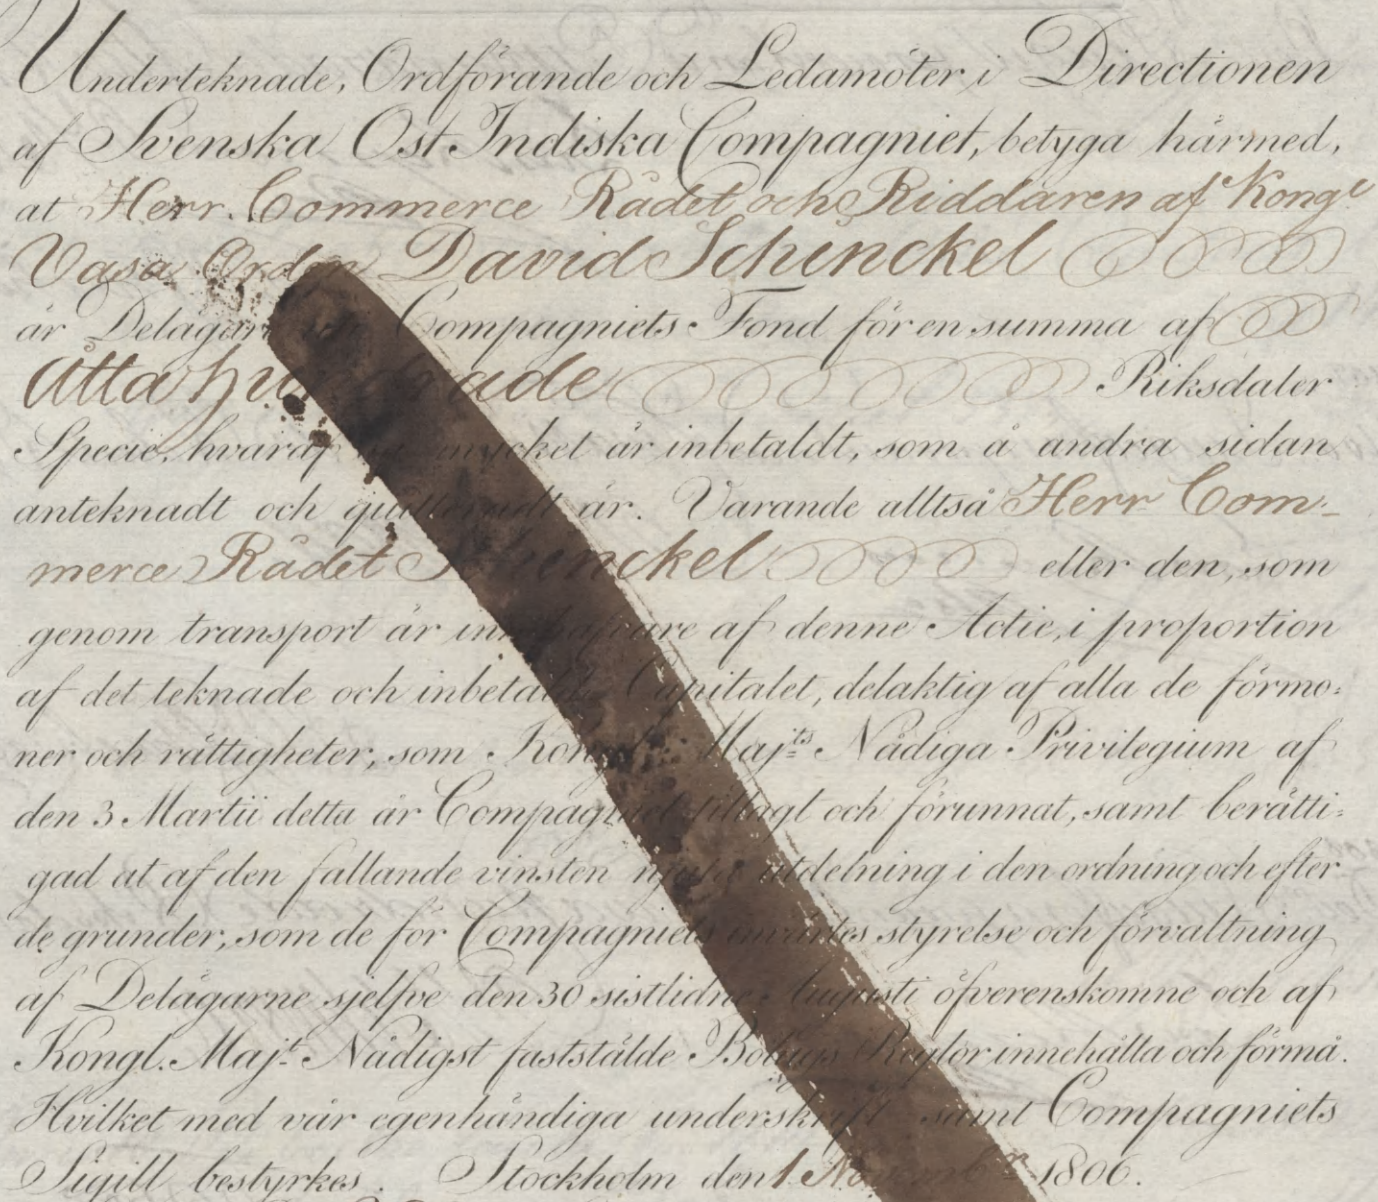 Underteknade, Ordförande och Ledamöter i Directionen
af Svenska Ost Indiska Compagniet, betyga härmed,
at Herr Commerce Rådet och Riddaren af Kongl
Vasa Orden David Schinckel
är Delägare uti Compagniets Fond för en summa af
Åtta hundrade Riksdaler
Specie, hvaraf så mycket är inbetaldt, som å andra sidan
anteknadt och quitteradt är. Varande alltså Herr Com-
merce Rådet Schinckel eller den, som
genom transport är innehafvare af denne Actie, i proportion
af det teknade och inbetalde Capitalet, delaktig af alla de förmo:
ner och rättigheter, som Kongl. Maj:ts Nådiga Privilegium af
den 3 Martii detta år Compagniet tillagt och förunnat, samt berätti:
gad at af den fallande vinsten njuta utdelning i den ordning och efter
de grunder, som de för Compagniets invärtes styrelse och förvaltning
af Delägarne sjelfve den 30 sistlidne Augusti öfverenskomne och af
Kongl. Maj:t Nådigst fastställde Bolags Reglor innehålla och förmå.
Hvilket med vår egenhändiga underskrift samt Compagniets
Sigill bestyrkes. Stockholm den 1 Novemb:r 1806.